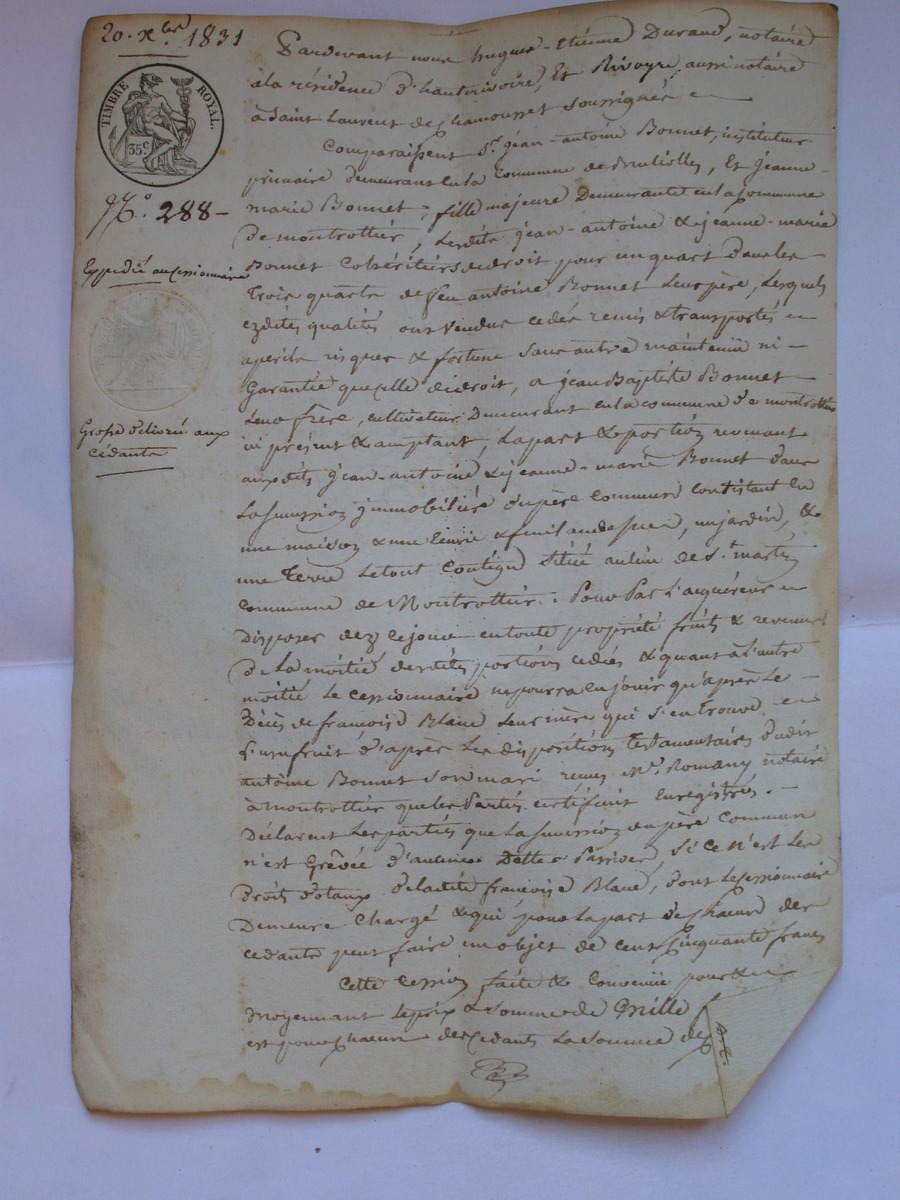 20. xbre 1831
TIMBRE ROYAL.
35c
No. 288 -
Expédié au cessionnaire
Grosse délivrée aux
cédants
Pardevant nous hugues-Etienne Durand, notaire
à la résidence d'hauterivoire, Et Rivoyre, aussi notaire
à Saint Laurent de Chamousset soussignés
Comparaissent Sr. jean-antoine Bonnet, instituteur
primaire demeurant en la Commune de Brullioles, Et jeanne
marie Bonnet, fille majeure Demeurante en la Commune
De montrottier, Lesdits jean-antoine & jeanne-marie
Bonnet Cohéritiers de droit pour un quart dans les
Trois quarts de feu antoine Bonnet Leur père, Lesquels
ezdites qualités ont vendu cédé remis & transportés
a périls risques & fortune sans autre maintenüe ni
Garantie que celle de droit, a jean Baptiste Bonnet
Leur frère, cultivateur Demeurant en la commune de montrottier
ici présent & acceptant, La part & portion revenant
auxdits jean-antoine & jeanne-marie Bonnet dans
La succession immobilière du père Commun Consistant En
une maison & une Ecurie & fenil au dessus, un jardin, &
une Terre Le tout Contigu Situé au lieu de St. martin
Commune de Montrottier. Pour Par L'acquéreur
Disposer dez ce jour en toute propriété fruits & revenus
de La moitié desdites portions cédées & quant à L'autre
moitié Le cessionnaire ne pourra en jouir qu'après Le
Décès de françoise Blanc Leur mère qui s'en trouve
L'usufruit d'après Les dispositions Testamentaires dudit
antoine Bonnet son mari reçues Me. Romany notaire
à montrottier que les Parties certifient Enregistrées. -
Déclarent Les parties que La succession du père Commun
n'est Grêvée d'aucunes Dettes Passives, si ce n'est Les
Droits dotaux de ladite françoise Blanc, dont Le cessionnaire
Demeure Chargé & qui pour La part de Chacun des
cédants peut faire un objet de cent Cinquante francs
Cette Cession faite & Convenüe pour &
Moyennant Le prix & Somme de Mille
est pour Chacun des Cédants La Somme de